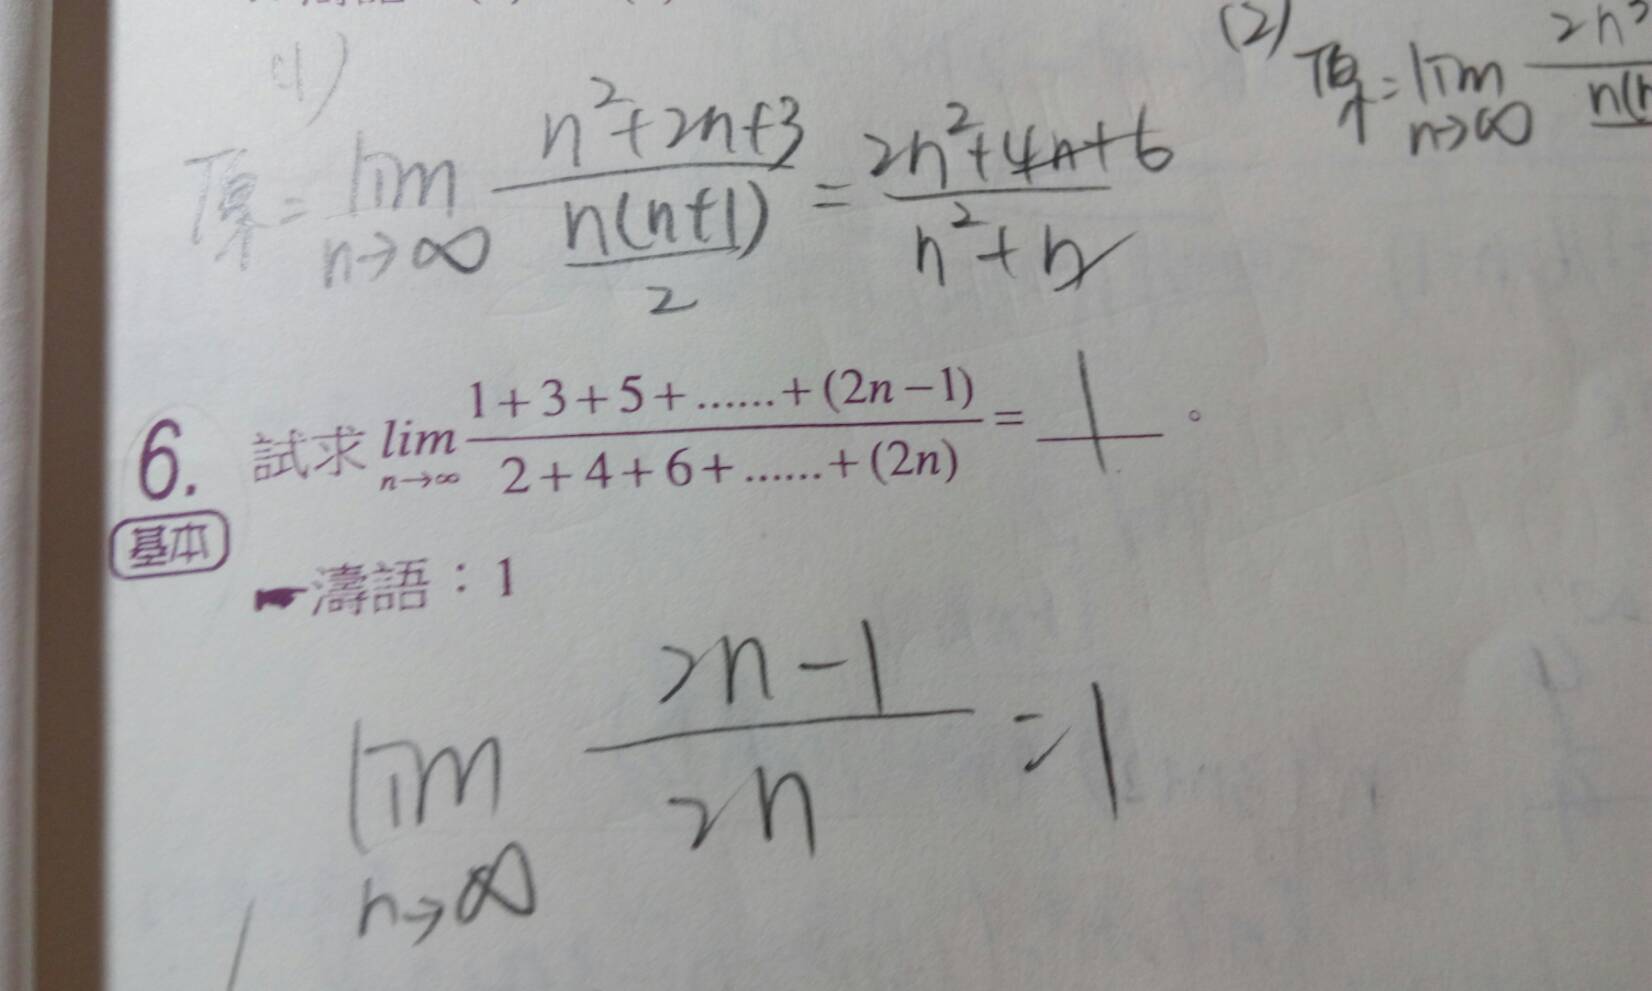 (1)
原 = lim n→∞ (n²+2n+3)/(n(n+1)/2) = (2n²+4n+6)/(n²+n)
(2) 原 = lim n→∞ 2n³
6. 試求 lim n→∞ (1+3+5+......+(2n−1))/(2+4+6+......+(2n)) = 1 。
基本
☛濤語：1
lim n→∞ (2n−1)/(2n) = 1